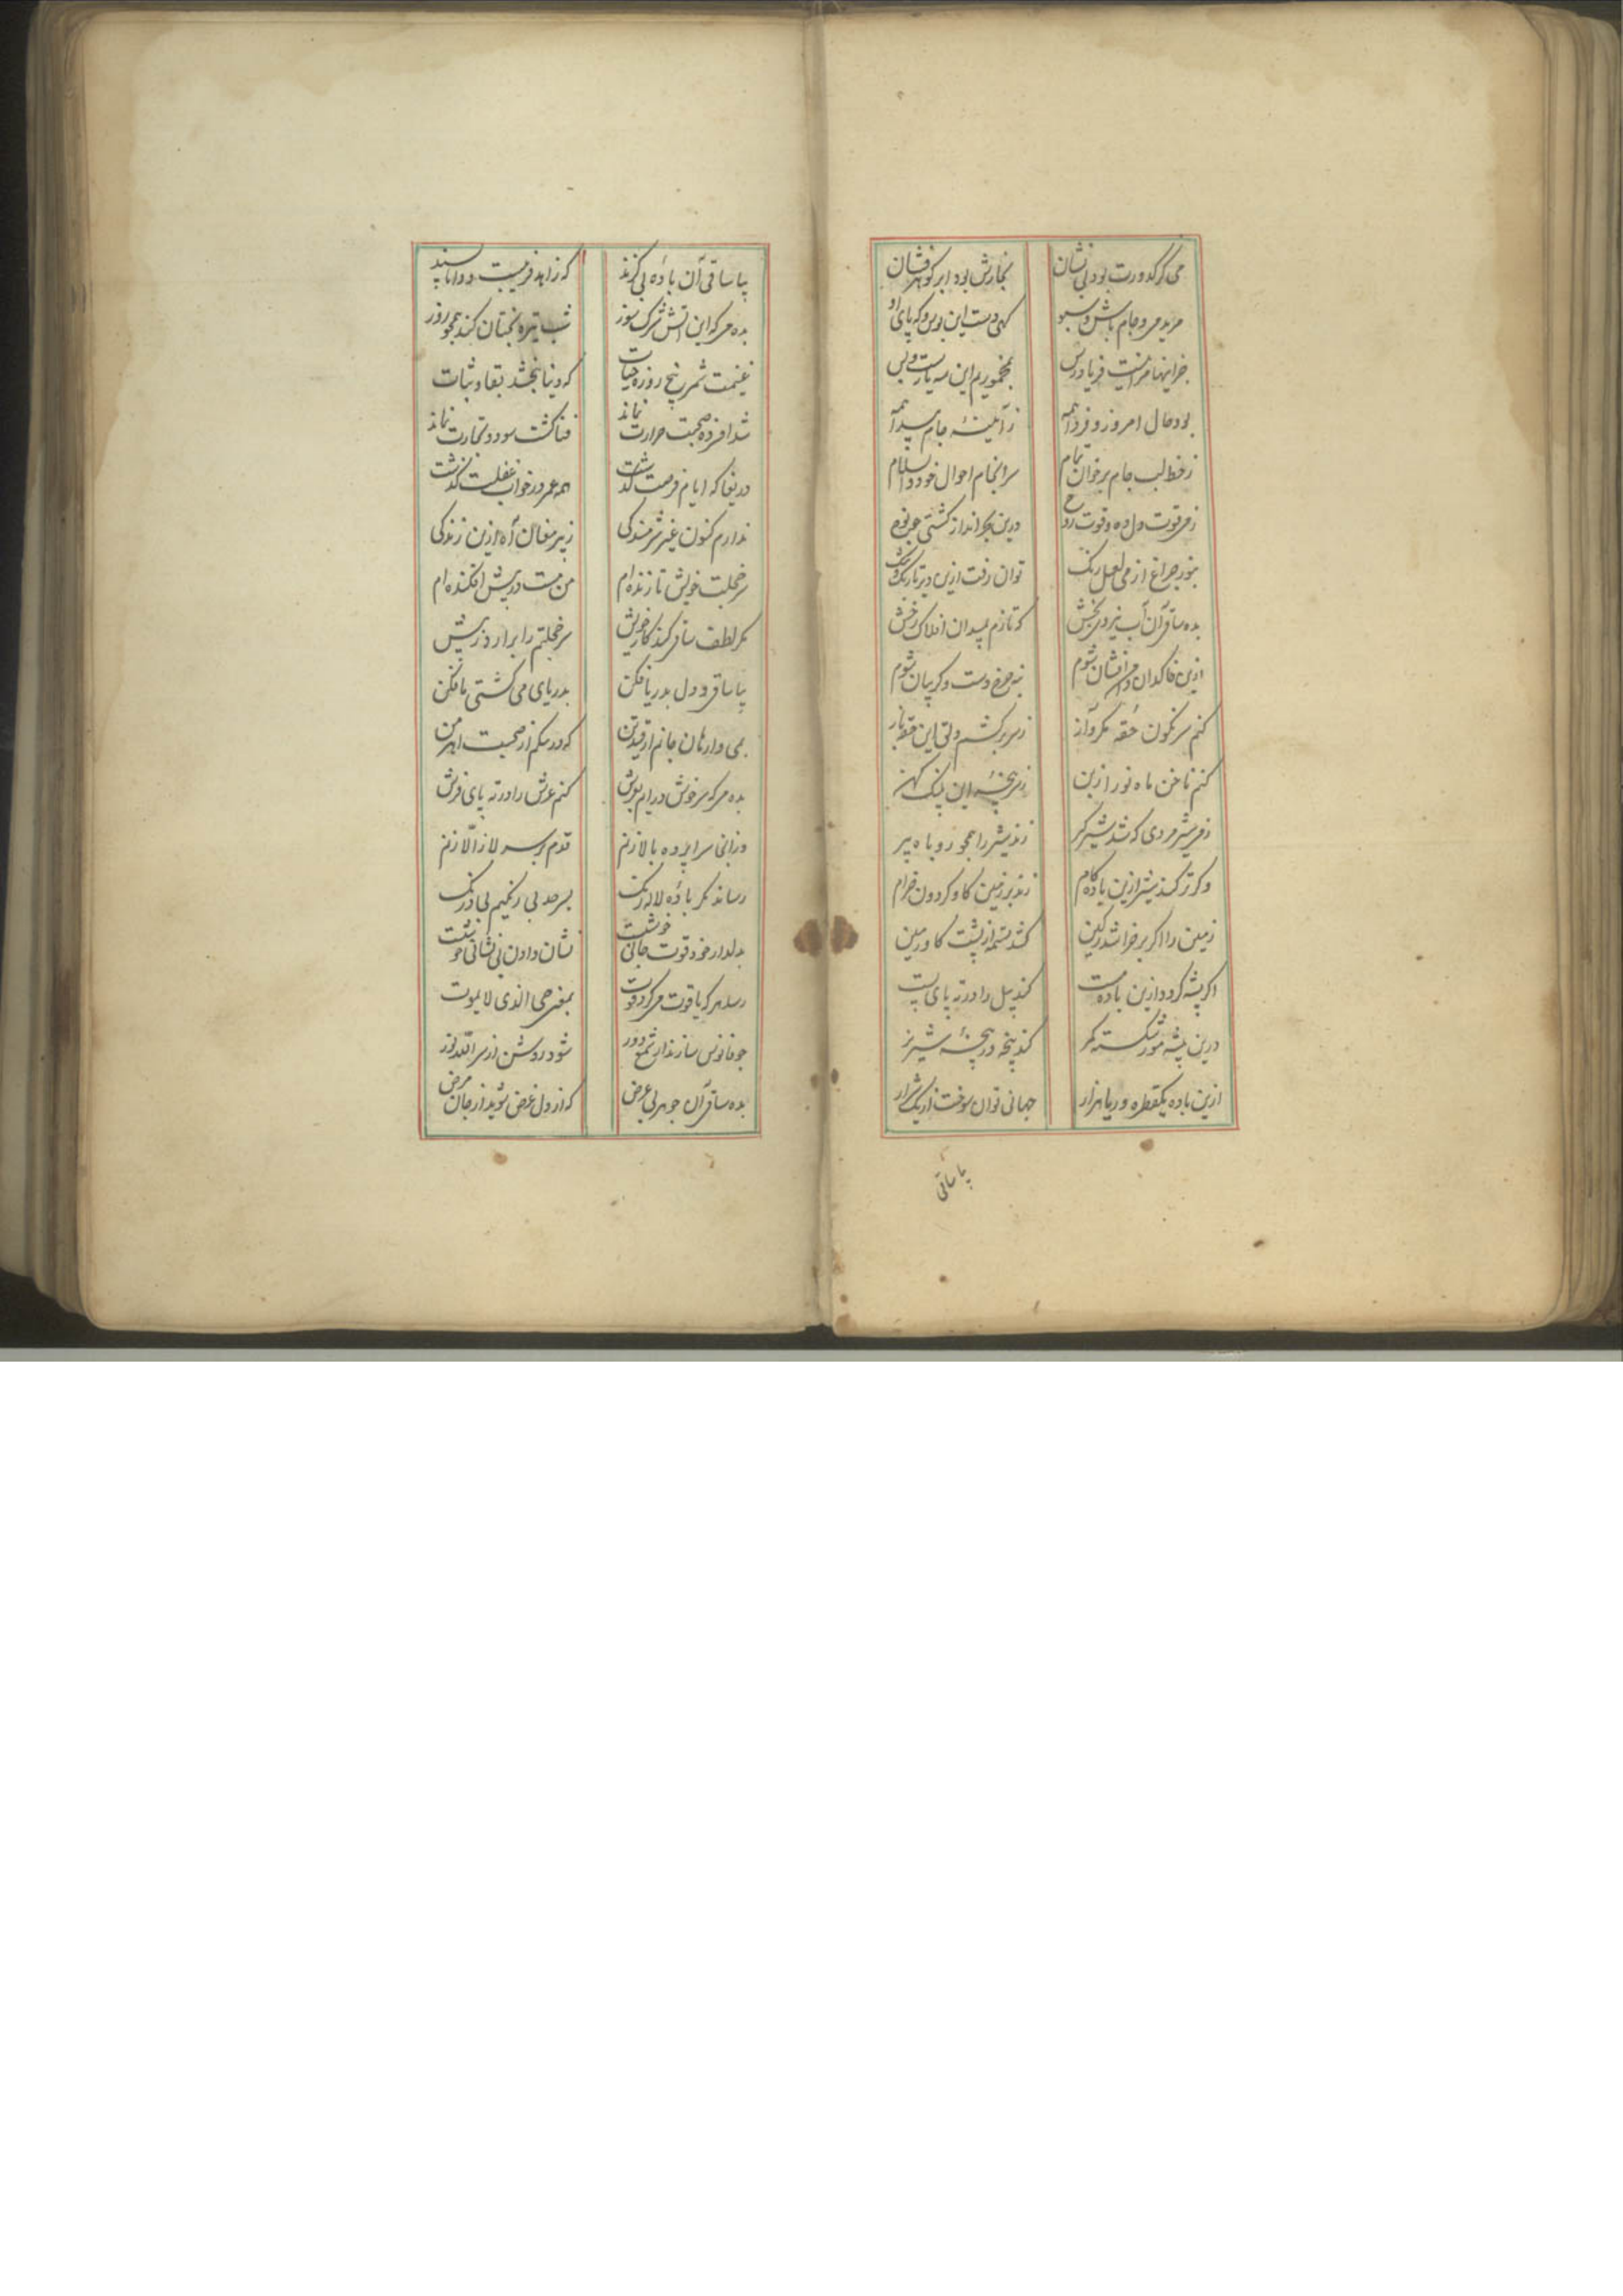 می کز کدورت بود بی نشان بخارش بود ابر کوهر فشان
مرید می و جام باش و سبو کهی دست این بوس و که پای او
جز اینها مرا نیست فریادرس بمخموریم این سه یارست و بس
بود حال امروز و فردا همه ز آیینهٔ جام پیدا همه
ز خط لب جام برخوان تمام سرانجام احوال خود والسلام
ز می قوت دل ده و قوت روح درین بحر انداز کشتی چو نوح
بنور چراغ از می لعل رنک توان رفت ازین دیر تاریک و تنک
بده ساقی آن آب نیرو بخش که تازم بمیدان افلاک رخش
ازین خاکدان دامن افشان شوم بچرخ دست و کریبان شوم
کنم سرنکون حقه مکر و آز ز سر برکشم دلق این حقه باز
کنم ناخن ماه نو را ز بن ز سر پنجهٔ این پلنک کهن
ز می شیرمردی که شد شیرکیر زند شیر را همچو روباه پیر
وکر تر کند شیر ازین باده کام زند بر زمین کاو کردون خرام
زمین را اکر برخراشد ز کین کشد تسمه از پشت کاو زمین
اکر پشه کردد ازین باده مست کند پیل را در ته پای پست
درین بیشه مور شکسته کمر کند پنجه در پنجهٔ شیر نر
ازین باده یکقطره دریا هزار جهانی توان سوخت از یک شرار
بیا ساقی
بیا ساقی آن بادهٔ بی کزند که زاهد فریبست و دانا پسند
بده می که این آتش شرک سوز شب تیره بختان کند همچو روز
غنیمت شمر پنج روزه حیات که دنیا نبخشد بقا و ثبات
شد افسرده صحبت حرارت نماند فنا کشت سود و تجارت نماند
دریغا که ایام فرصت کذشت همه عمر در خواب غفلت کذشت
ندارم کنون غیر شرمندکی ز پیر مغان آه ازین زندکی
سر خجلت خویش تا زنده ام من مست در پیش افکنده ام
مکر لطف ساقی کند کار خویش سر خجلتم را برآرد ز پیش
بیا ساقی و دل بدریا فکن بدریای می کشتی ما فکن
بمی وارهان جانم از قید تن که دلکیرم از صحبت اهرمن
بده می که سرخوش درآیم بعرش کنم عرش را در ته پای فرش
در آنی سراپرده بالا زنم قدم بر سر لا ز الا زنم
رساند مکر بادهٔ لاله رنک بسرحد بی رنکیم بی درنک
بدلدار خود قوت جانی خوشست نشان دادن بی نشانی خوشست
رسد هر که یاقوت می کرد قوت بمغز حی الذی لا یموت
چو فانوس سازند از شمع دور شود روشن از سر الله نور
بده ساقی آن جوهر بی عرض که از دل غرض شوید از جان مرض